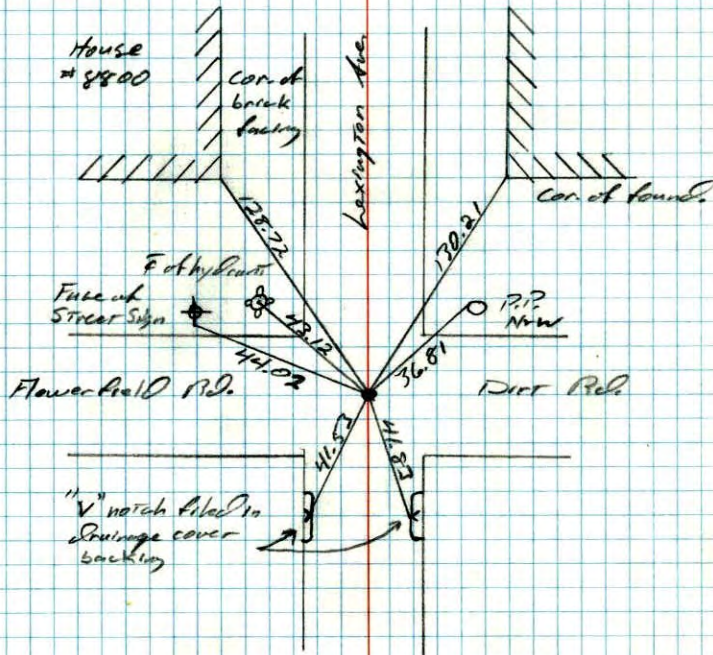 House
# 8800
Cor. of
brick
facing
Lexington Ave.
Cor. of found.
128.72
130.21
₵ of hydrant
Face of
Street Sign
43.12
44.02
36.81
P.P.
N+W
Flowerfield Rd.
Dirt Rd.
41.53
41.83
"V" notch filed in
drainage cover
backing